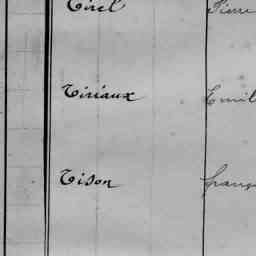 Tirel Pierre
Tiriaux Emil
Tison franç